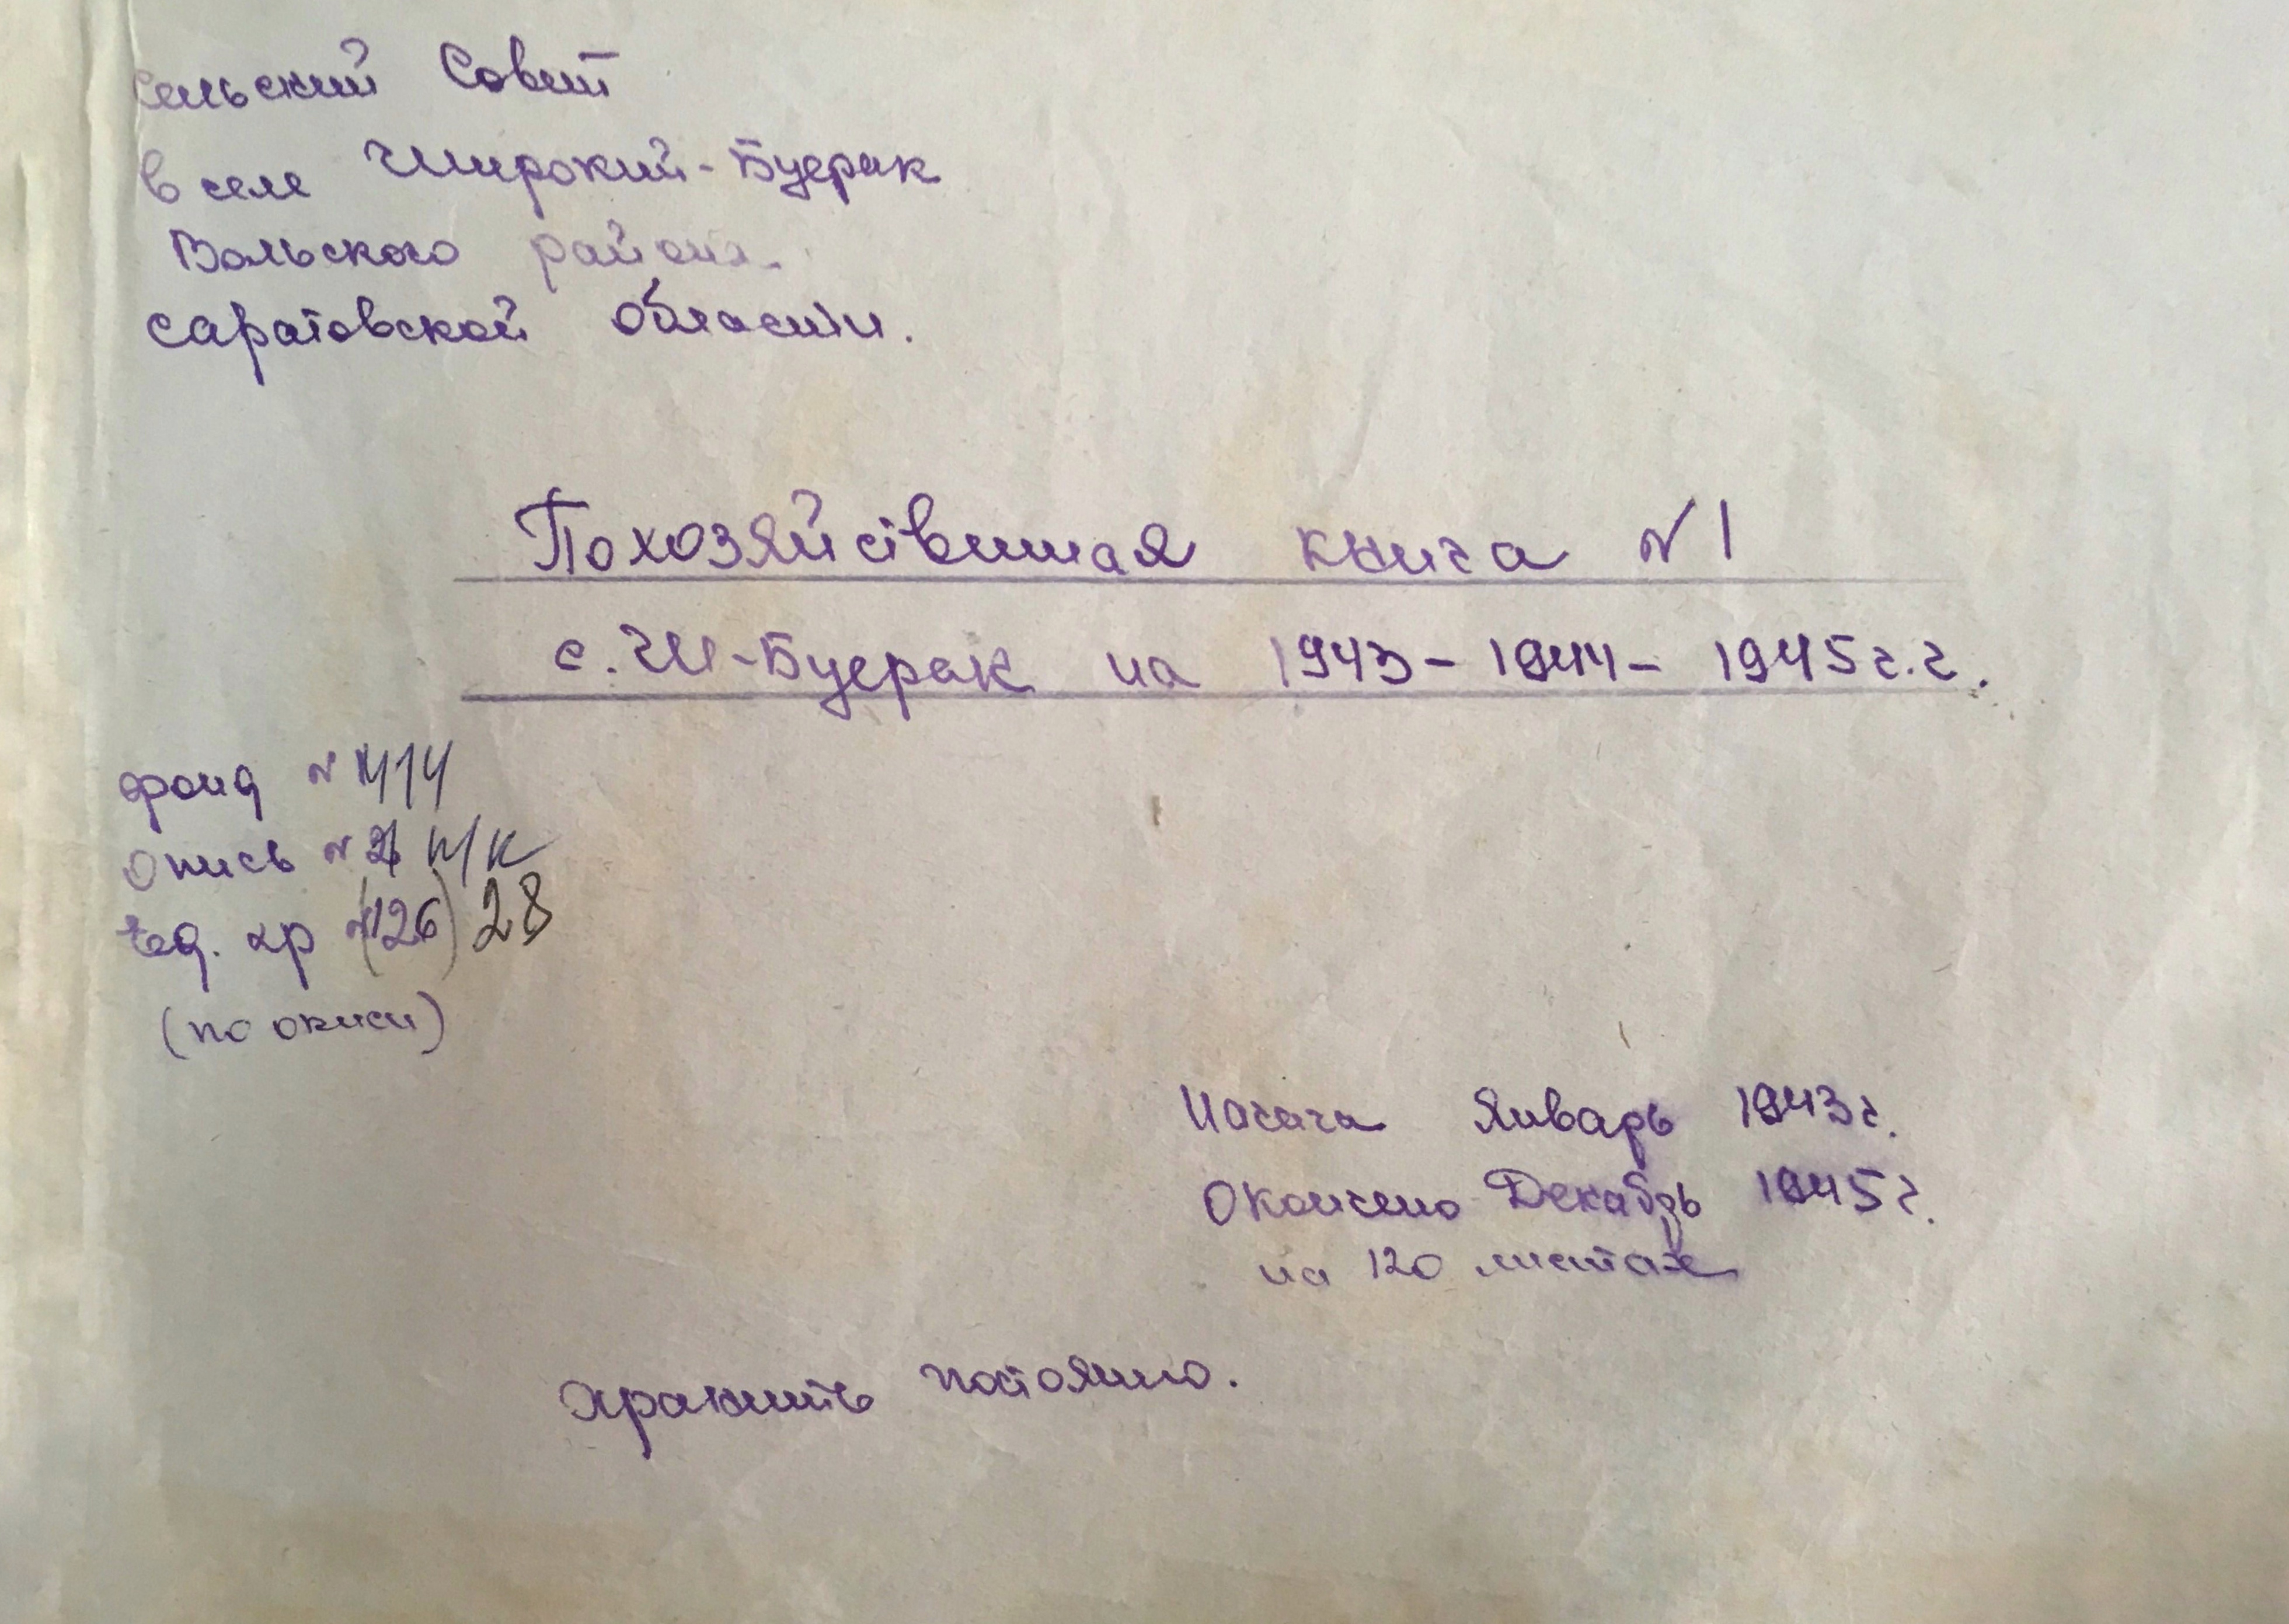 Сельский Совет
в селе Широкий-Буерак
Вольского района
саратовской области.
Похозяйственная книга №1
с. Ш-Буерак на 1943-1944-1945 г.г.
фонд № 414
опись №
Ед. хр № (126) 28
(по описи)
Начата Январь 1943 г.
Окончено Декабрь 1945 г.
на 120 листах
хранить постоянно.